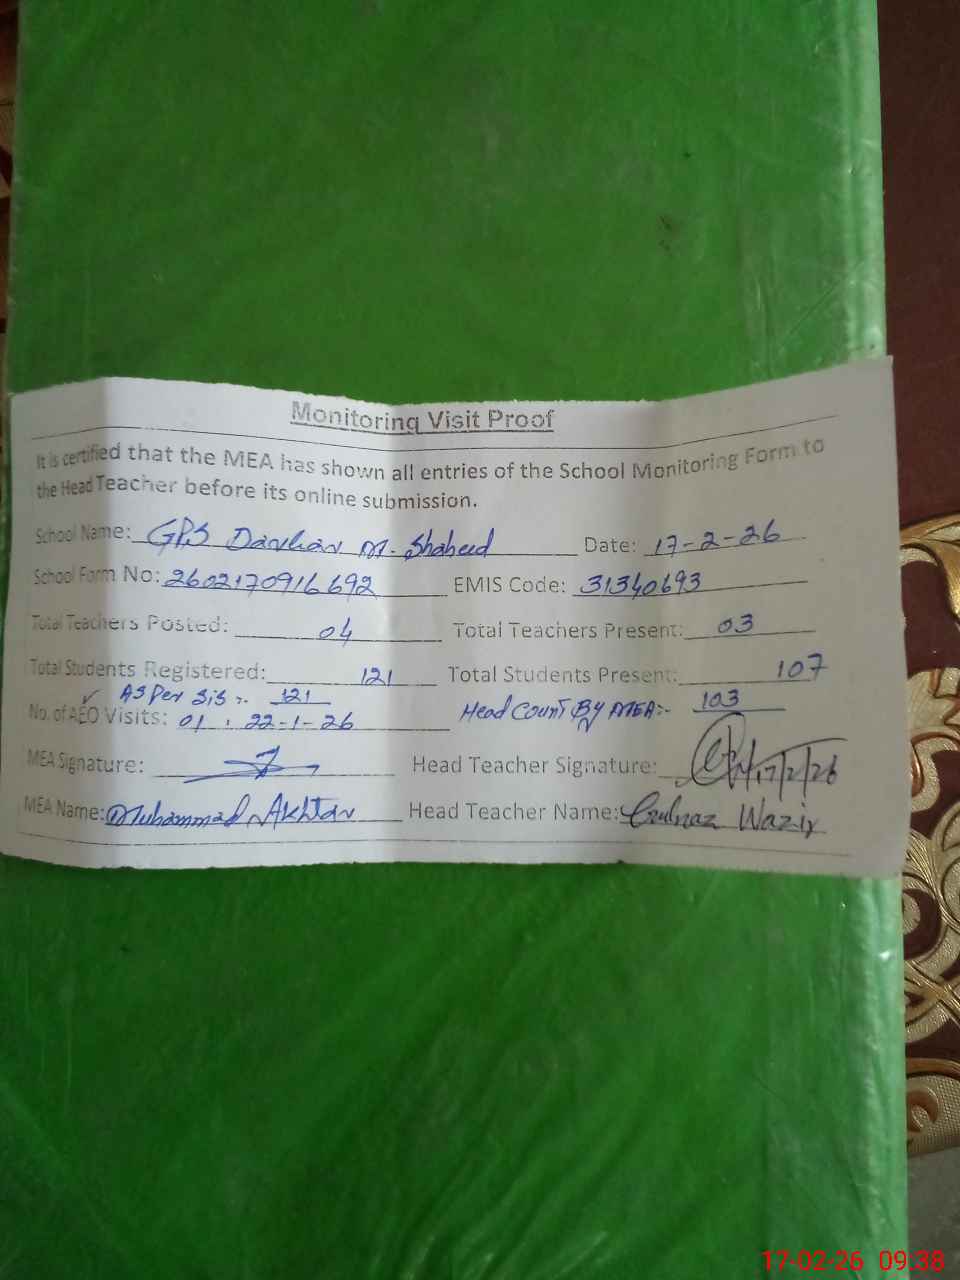 Monitoring Visit Proof
It is certified that the MEA has shown all entries of the School Monitoring Form to
the Head Teacher before its online submission.
School Name: GPS Darkhan M. Shaheed Date: 17-2-26
School Form No: 2602170916692 EMIS Code: 31340693
Total Teachers Posted: 04 Total Teachers Present: 03
Total Students Registered: 121 Total Students Present: 107
✓ AS Per SiS :- 121 Head Count By MEA:- 103
No. of AEO Visits: 01 , 22-1-26
MEA Signature: Head Teacher Signature: 17/2/26
MEA Name: Muhammad Akhtar Head Teacher Name: Gulnaz Wazir
17-02-26 09:38